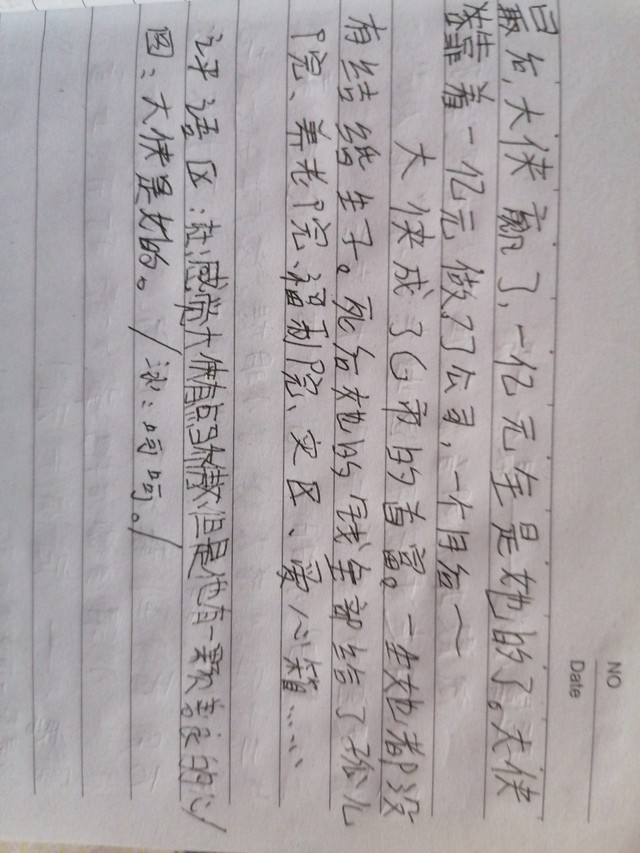 NO
Date
最后,大侠赢了,一亿元全是她的了。大侠
靠着一亿元做了公司,一个月后~
大侠成了G市的首富。一生她都没
有结婚生子。死后她的钱全部给了孤儿
院、养老院、福利院、灾区、爱心箱……
评语区:芸:感觉大侠有点骄傲,但是她有一颗善良的心/
圆:大侠是她的。/冰:呵呵。/